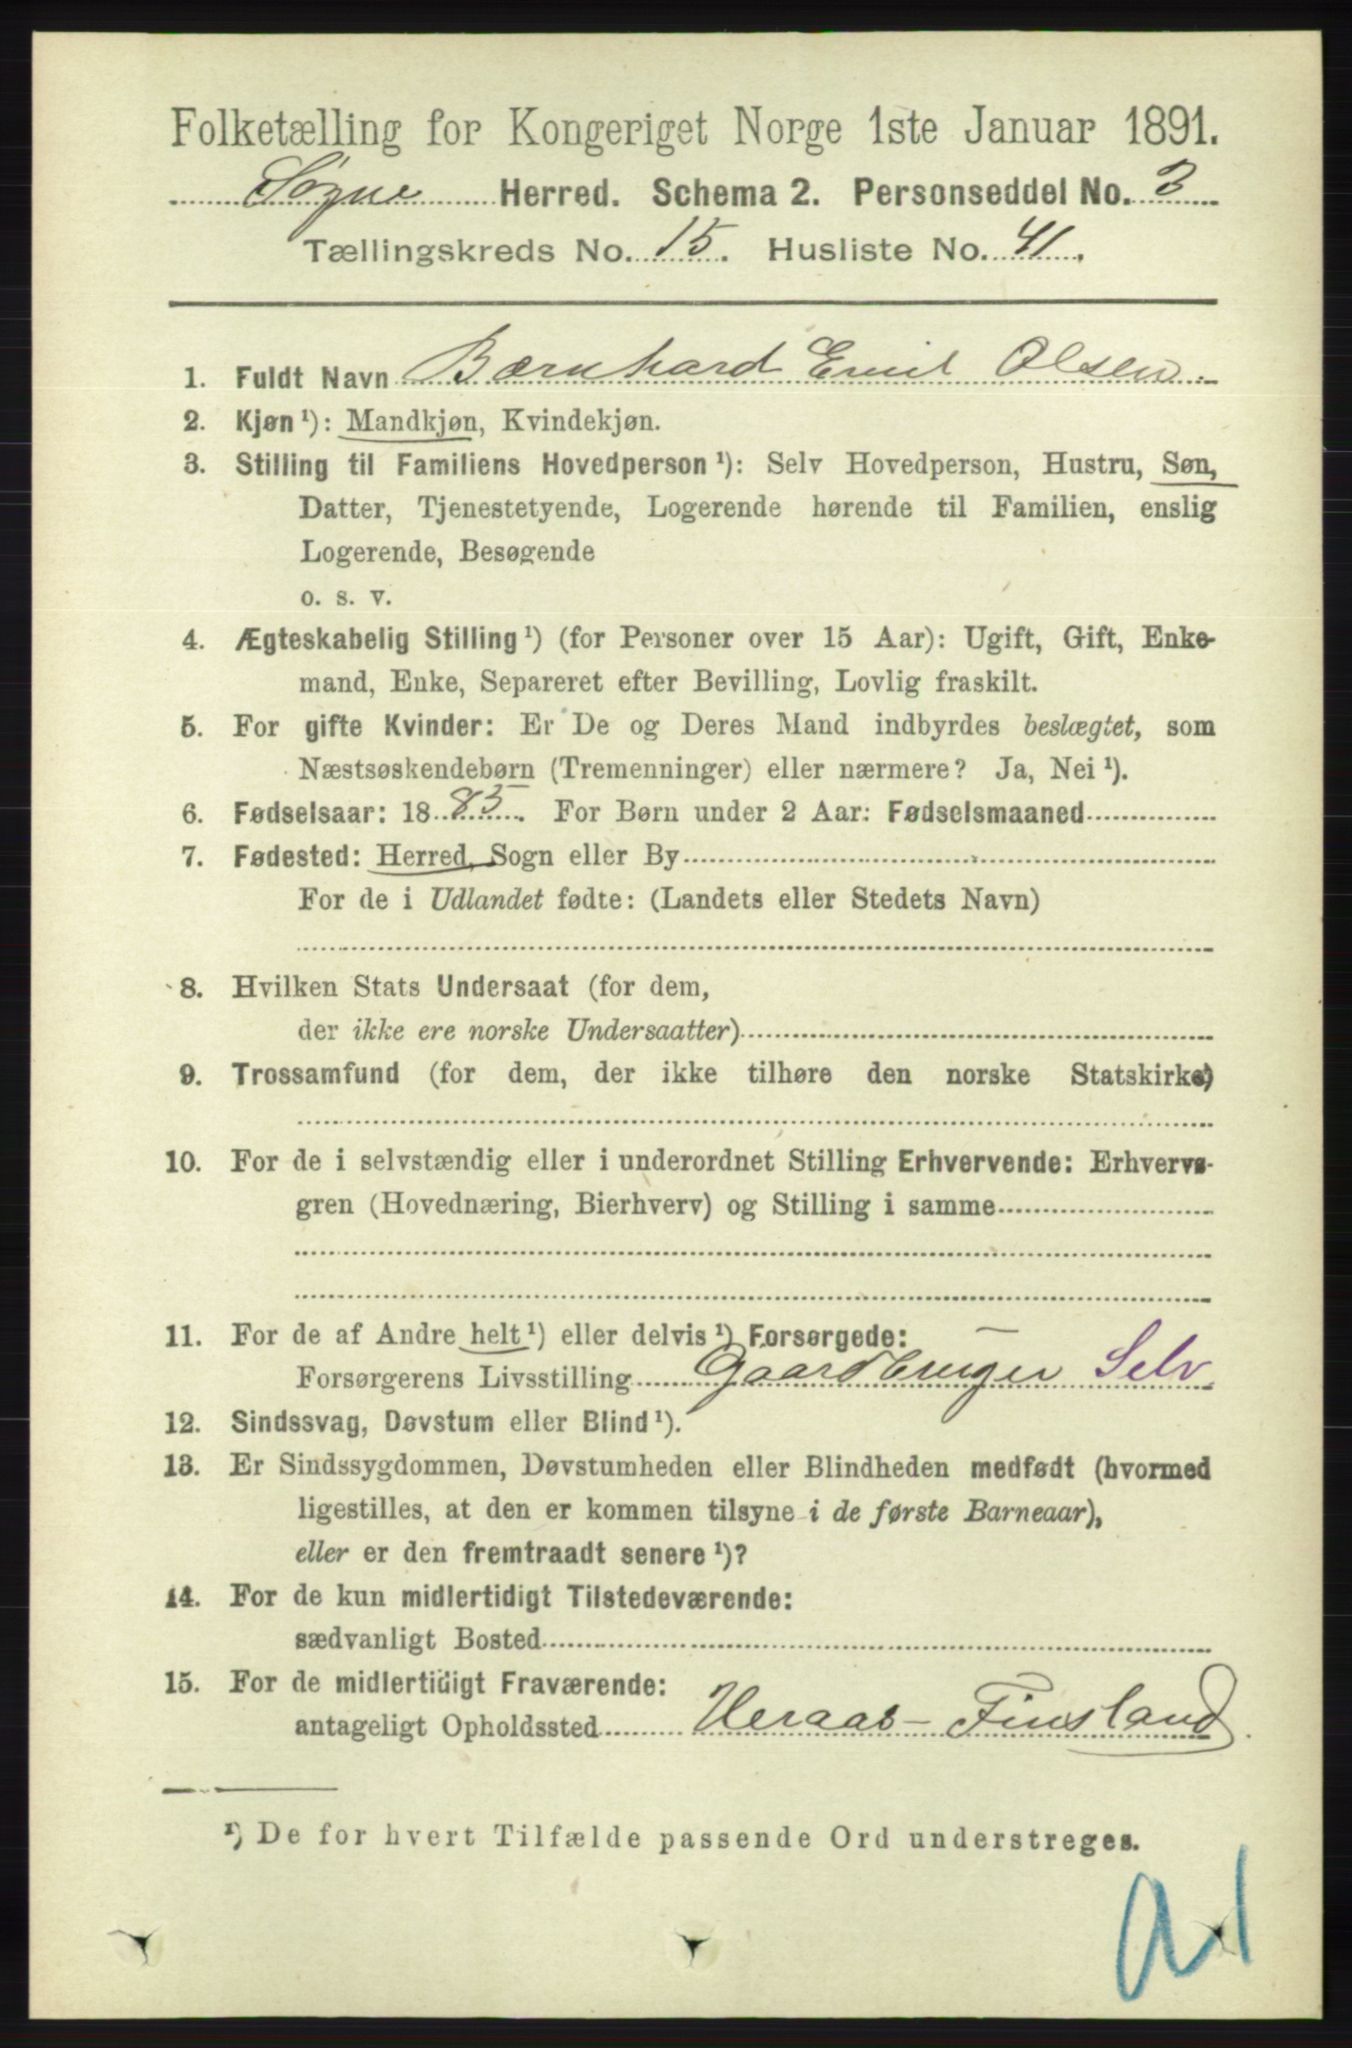 Folketælling for Kongeriget Norge 1ste Januar 1891.
Søgne Herred. Schema 2. Personseddel No. 3
Tællingskreds No. 15. Husliste No. 41.
1. Fuldt Navn Bærnhard Emil Olsen
2. Kjøn ¹): Mandkjøn, Kvindekjøn.
3. Stilling til Familiens Hovedperson ¹): Selv Hovedperson, Hustru, Søn,
Datter, Tjenestetyende, Logerende hørende til Familien, enslig
Logerende, Besøgende
o. s. v.
4. Ægteskabelig Stilling ¹) (for Personer over 15 Aar): Ugift, Gift, Enke-
mand, Enke, Separeret efter Bevilling, Lovlig fraskilt.
5. For gifte Kvinder: Er De og Deres Mand indbyrdes beslægtet, som
Næstsøskendebørn (Tremenninger) eller nærmere? Ja, Nei ¹).
6. Fødselsaar: 1885. For Børn under 2 Aar: Fødselsmaaned
7. Fødested: Herred, Sogn eller By
For de i Udlandet fødte: (Landets eller Stedets Navn)
8. Hvilken Stats Undersaat (for dem,
der ikke ere norske Undersaatter)
9. Trossamfund (for dem, der ikke tilhøre den norske Statskirke)
10. For de i selvstændig eller i underordnet Stilling Erhvervende: Erhvervs-
gren (Hovednæring, Bierhverv) og Stilling i samme
11. For de af Andre helt ¹) eller delvis ¹) Forsørgede:
Forsørgerens Livsstilling Gaardbruger Selv
12. Sindssvag, Døvstum eller Blind ¹).
13. Er Sindssygdommen, Døvstumheden eller Blindheden medfødt (hvormed
ligestilles, at den er kommen tilsyne i de første Barneaar),
eller er den fremtraadt senere ¹)?
14. For de kun midlertidigt Tilstedeværende:
sædvanligt Bosted
15. For de midlertidigt Fraværende:
antageligt Opholdssted Heraas - Finsland
¹) De for hvert Tilfælde passende Ord understreges.